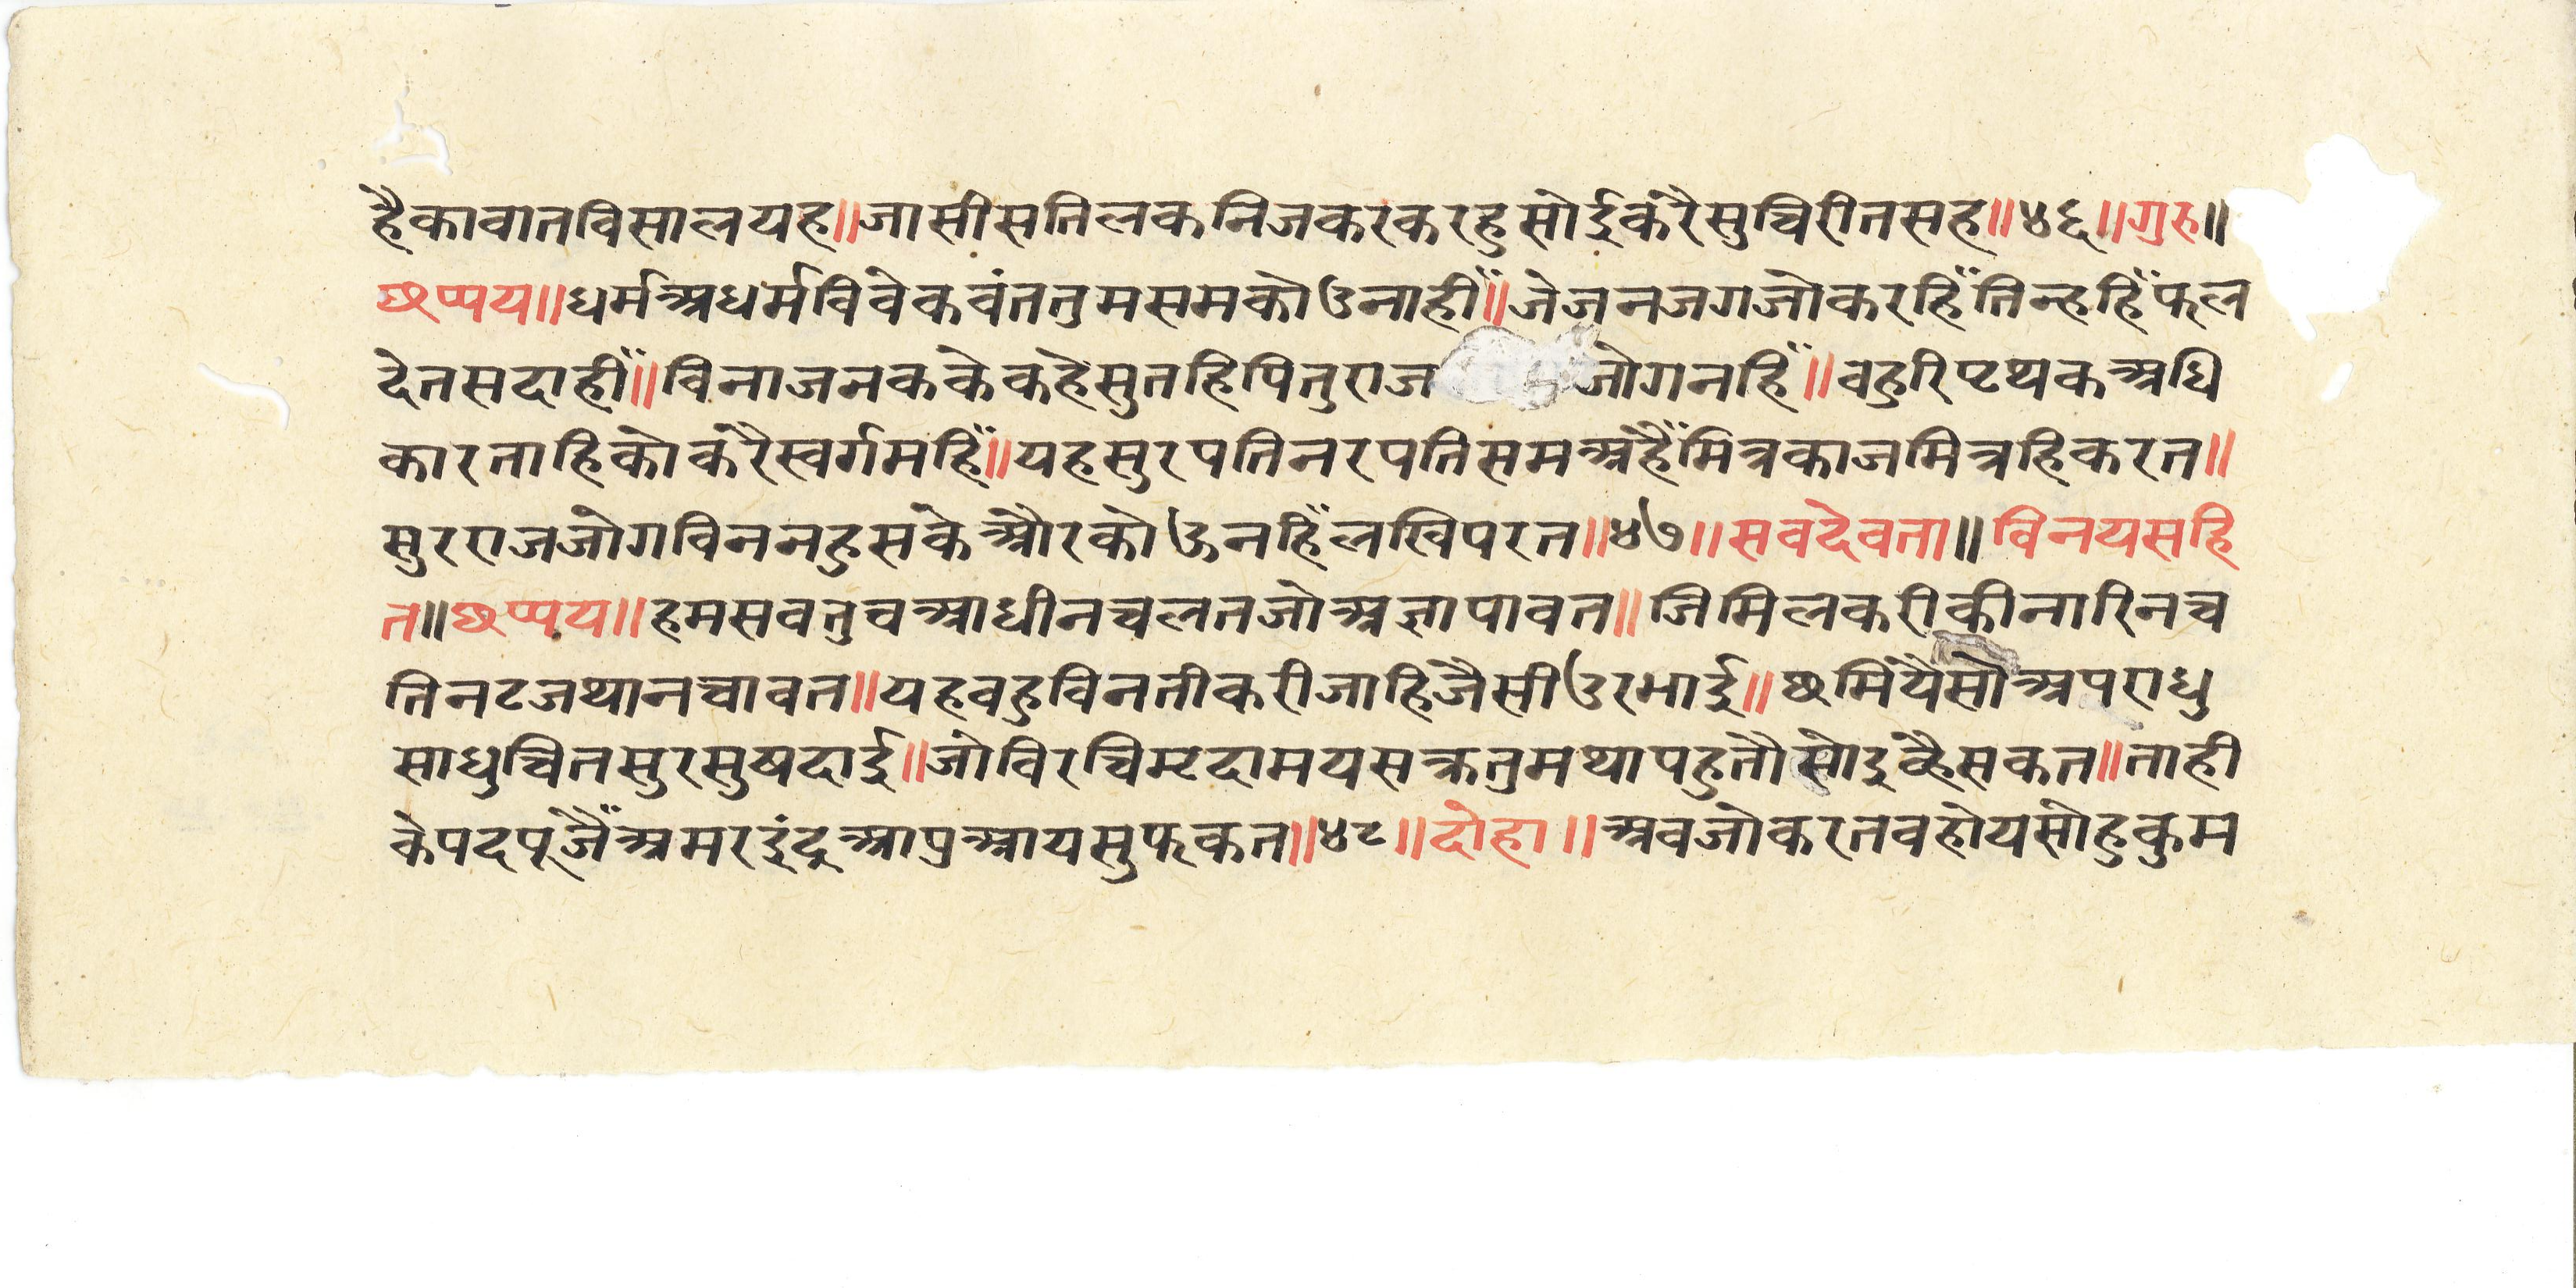 हैकावातविसालयह॥जासीसतिलकनिजकरकरहुसोईकरैसुचिरीतसह॥४६॥गुरु॥
छप्पय॥धर्मअधर्मविवेकवंततुमसमकोउनाहीँ॥जेजनजगजोकरहिँतिन्हहिँफल
देतसदाहीँ॥विनाजनककेकहेसुतहिपितुराज जोगनहिँ॥वहुरिपृथकअधि
कारताहिकोकरैस्वर्गमहिँ॥यहसुरपतिनरपतिसमअहैँमित्रकाजमित्रहिकरत॥
सुरराजजोगविननहुसकेऔरकोऊनहिँलखिपरत॥४७॥सवदेवता॥विनयसहि
त॥छप्पय॥हमसवतुवआधीनचलतजोअज्ञापावत॥जिमिलकरीकीनारिनच
तिनटजथानचावत॥यहवहुविनतीकरीजाहिजैसीउरभाई॥छमियैसोअपराधु
साधुचितसुरसुषदाई॥जोविरचिम्रदामयसक्रतुमथापहुतौसोइव्हैसकत॥ताही
केपदपूजैँअमरइंद्रआप्रआयसुफकत॥४८॥दोहा॥अवजोकरतवहोयसोहुकुम